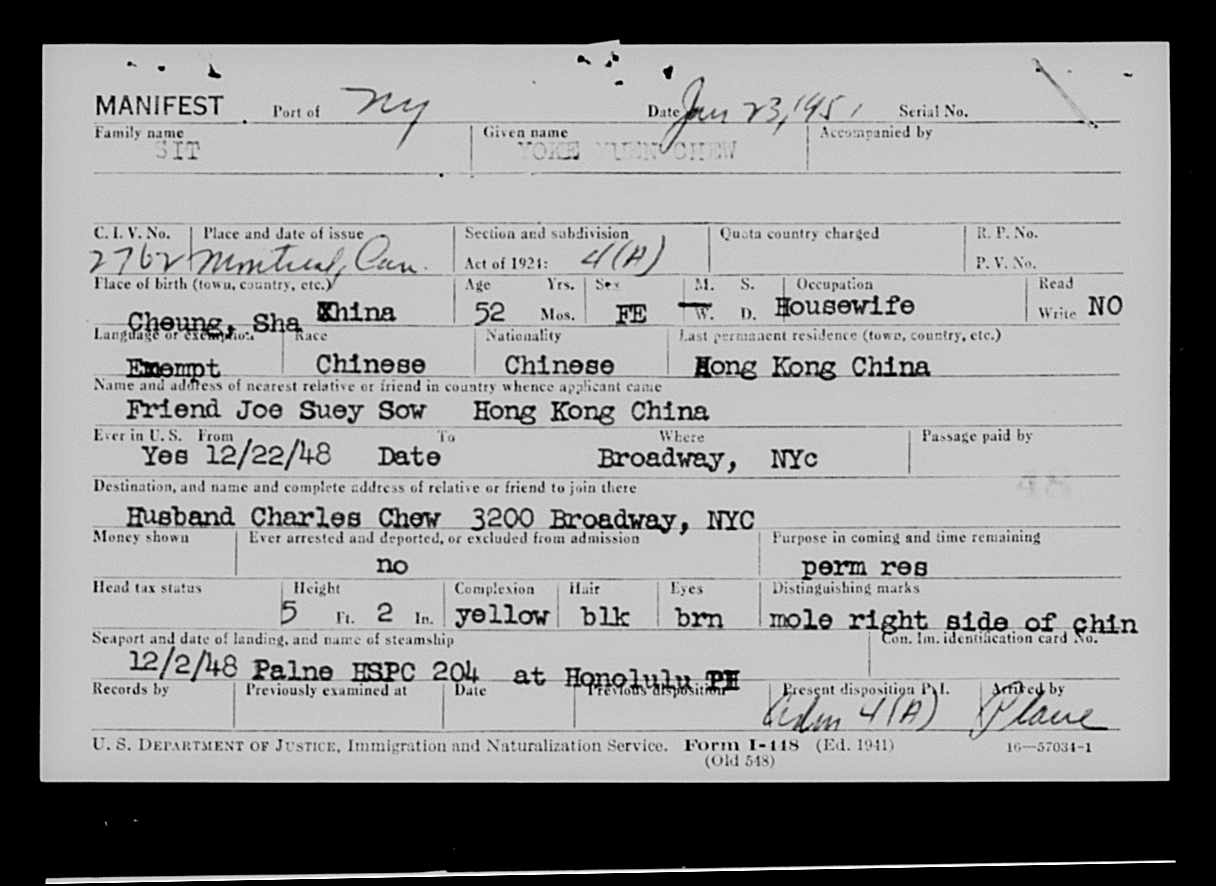 MANIFEST Port of NY Date Jan 23, 1951 Serial No.
Family name Given name Accompanied by
SIT YOKE YUEN CHEW
C. I. V. No. Place and date of issue Section and subdivision Quota country charged R. P. No.
2762 Montreal, Can. Act of 1924: 4(A) P. V. No.
Place of birth (town, country, etc.) Age Yrs. Sex M. S. Occupation Read
Cheung, Sha China 52 Mos. FE W. D. Housewife Write NO
Language or exemption Race Nationality Last permanent residence (town, country, etc.)
Exempt Chinese Chinese Hong Kong China
Name and address of nearest relative or friend in country whence applicant came
Friend Joe Suey Sow Hong Kong China
Ever in U. S. From To Where Passage paid by
Yes 12/22/48 Date Broadway, NYc
Destination, and name and complete address of relative or friend to join there
Husband Charles Chew 3200 Broadway, NYC
Money shown Ever arrested and deported, or excluded from admission Purpose in coming and time remaining
no perm res
Head tax status Height Complexion Hair Eyes Distinguishing marks
5 Ft. 2 In. yellow blk brn mole right side of chin
Seaport and date of landing, and name of steamship Con. Im. identification card No.
12/2/48 Palne HSPC 204 at Honolulu
Records by Previously examined at Date Previous disposition Present disposition P. I. Arrived by
Adm 4(A) Plane
U. S. DEPARTMENT OF JUSTICE, Immigration and Naturalization Service. Form I-448 (Ed. 1941) 16—57034-1
(Old 548)